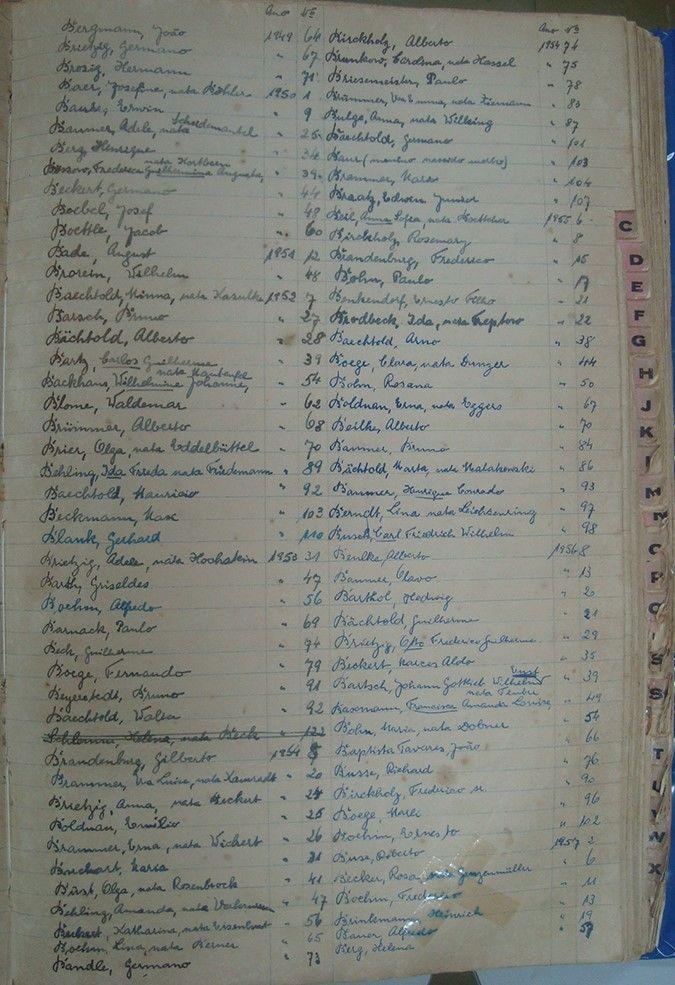 Ano No
Bergmann, João 1949 64
Brietzig, Germano " 67
Brosig, Hermann " 71
Baer, Josefine, nata Köhler 1950 1
Bauke, Erwin " 9
Bammer, Adele, nata Scheidemantel " 25
Berg Henrique " 34
Frederica Guilhermina Augusta, nata Kortbein " 39
Beckert, Germano " 44
Boebel, Josef " 48
Boettle, Jacob " 60
Bade, August 1951 12
Brorein, Wilhelm " 48
Baechtold, Minna, nata Kazulke 1952 7
Barsch, Bruno " 27
Bächtold, Alberto " 28
Bartz, Carlos Guilherme " 39
Backhaus, Wilhelmine Johanne, nata Manteufel " 54
Blome, Waldemar " 62
Brümmer, Alberto " 68
Brier, Olga, nata Eddelbüttel " 70
Behling, Ida Freda nata Friedemann " 89
Baechtold, Mauricio " 92
Beckmann, Max " 103
Blank, Gerhard " 110
Brietzig, Adele, nata Hochstein 1953 31
Barth, Griseldes " 47
Boehm, Alfredo " 56
Barnack, Paulo " 69
Beck, Guilherme " 74
Boege, Fernando " 79
Beyerstedt, Bruno " 91
Baechtold, Walter " 92
Helena, nata Beck " 122
Brandenburg, Gilberto 1954 8
Brammer, Eva Luise, nata " 20
Brietzig, Anna, nata Beckert " 24
Boldnan, Emilio " 25
Brammer, Erna, nata Wichert " 26
Borchart, Maria " 31
Bürst, Olga, nata Rosenbrock " 41
Behling, Amanda, nata " 47
Katharina, nata " 56
Boehm, Lina, nata Berner " 65
Bandle, Germano " 73
Ano No
Kirchholz, Alberto 1954 74
Brunkow, Carolina, nata Hassel " 75
Briesemeister, Paulo " 78
Brümmer, Emma, nata Ziemann " 83
Bulge, Anna, nata Welbing " 87
Baechtold, Germano " 101
Baur (menino nascido morto) " 103
Brammer, Maria " 104
Braatz, Edwin Junior " 107
Beil, Anna Sofia, nata Boettcher 1955 6
Birckholz, Rosemary " 8
Brandenburg, Frederico " 15
Bohn, Paulo " 17
Benkendorf, Ernesto Filho " 21
Brodbeck, Ida, nata Treptow " 22
Baechtold, Arno " 38
Boege, Clara, nata Dunger " 44
Bohn, Rosana " 50
Boldnan, Erna, nata Eggers " 67
Beilke, Alberto " 70
Bammer, Bruno " 84
Bächtold, Marta, nata Malakowski " 86
Bammer, Henrique Conrado " 93
Berndt, Lina nata Leichsenring " 97
Busch, Carl Friedrich Wilhelm " 98
Benlke, Alberto 1956 8
Bammer, Olavo " 13
Barthol, Hedwig " 20
Bächtold, Guilherme " 21
Brietzig, Otto Frederico Guilherme " 29
Beckert, Marcos Aldo " 35
Bartsch, Johann Gottlieb Wilhelm Ernst " 39
Francisca Amanda Louise, nata " 49
Bohn, Maria, nata Dobner " 54
Baptista Tavares, João " 66
Busse, Richard " 76
Kirchholz, Frederico " 90
Boege, " 96
Boehm, Ernesto " 102
Buse, Roberto 1957 2
Becker, Rosa, nata Genzenmüller " 6
Boehm, Frederico " 11
Brinkmann, Heinrich " 13
Bauer, Alfredo " 19
Berg, Helena " 57
C
D
E
F
G
H
J
K
M
N
O
P
S
S
T
U
W
X